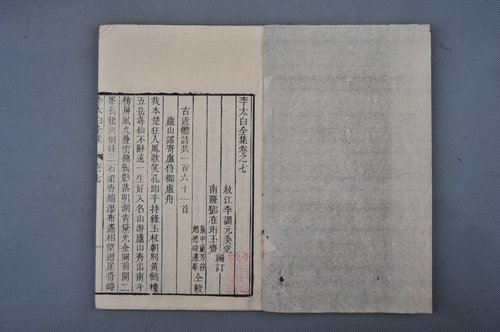 李太白全集卷之七
敍江李調元美堂
南隆鄧在珩玉齋 編訂
古近體詩共一百六十一首
廬山謠寄盧侍御虛舟
我本楚狂人鳳歌笑孔丘手持綠玉杖朝別黃鶴樓
五岳尋仙不辭遠一生好入名山遊廬山秀出南斗
傍屏風九疊雲錦張影落明湖青黛光金闕前開二
峯長銀河倒挂三石梁香爐瀑布遙相望迴崖沓嶂
李太白全集